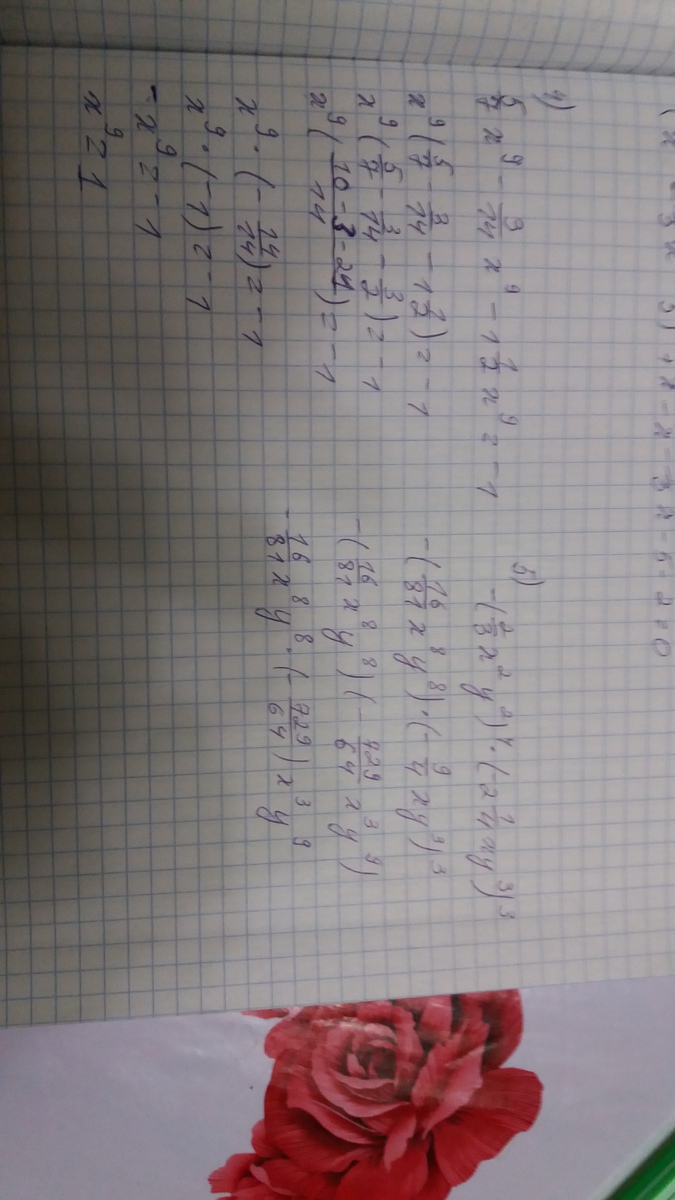 4)
5/7 x⁹ - 3/14 x⁹ - 1 1/2 x⁹ = -1
x⁹(5/7 - 3/14 - 1 1/2) = -1
x⁹(5/7 - 3/14 - 3/2) = -1
x⁹(10-3-21/14) = -1
x⁹·(-14/14) = -1
x⁹·(-1) = -1
-x⁹ = -1
x⁹ = 1
5)
-(2/3 x² y²)⁴·(-2 1/4 xy³)³
-(16/81 x⁸ y⁸)·(-9/4 xy³)³
-(16/81 x⁸ y⁸)(-729/64 x³ y⁹)
-16/81 x⁸ y⁸·(-729/64) x³ y⁹